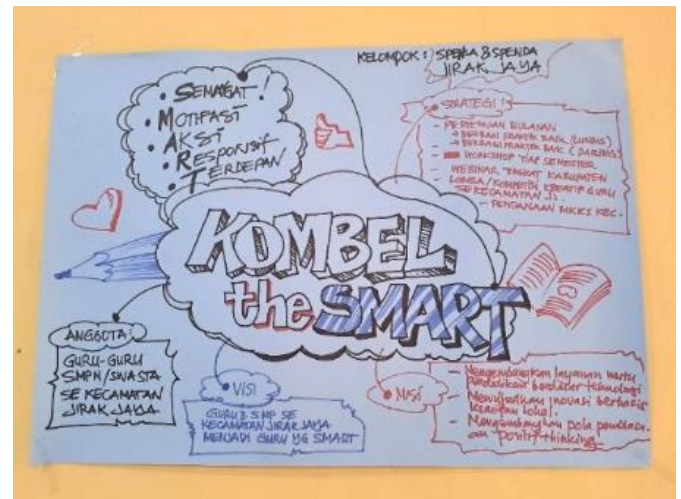 KELOMPOK : SPENSA & SPENDA
JIRAK JAYA
• SEMANGAT !
• MOTIFASI
• AKSI
• RESPONSIF
• TERDEPAN
STRATEGI !
- PERTEMUAN BULANAN
→ BERBAGI PRAKTIK BAIK (LURING)
→ BERBAGI PRAKTIK BAIK (DARING)
- WORKSHOP TIAP SEMESTER
- WEBINAR TINGKAT KABUPATEN
LOMBA/KOMPETISI KREATIF GURU
SE KECAMATAN JJ.
- PENDANAAN MKKS KEC.
KOMBEL
the SMART
ANGGOTA:
GURU-GURU
SMPN/SWASTA
SE KECAMATAN
JIRAK JAYA
• VISI
GURU2 SMP SE
KECAMATAN JIRAK JAYA
MENJADI GURU YG SMART
• MISI
- Mengembangkan layanan mutu
pendidikan berbasis teknologi
- Mewujudkan inovasi berbasis
kearifan lokal.
- Mengembangkan pola
"positif thinking"